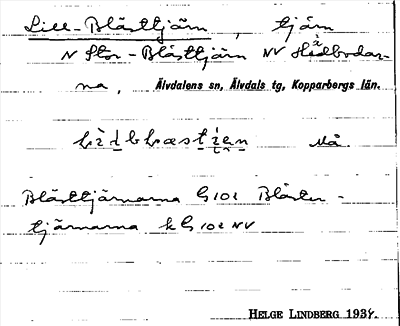 Lill-Blästtjärn, tjärn
N Stor-Blästtjärn NV Hedbodar-
na, Älvdalens sn, Älvdals tg, Kopparbergs län.
Må.
Blästtjärnarna G 102 Bläster-
tjärnarna k G 102 NV
HELGE LINDBERG 1934.